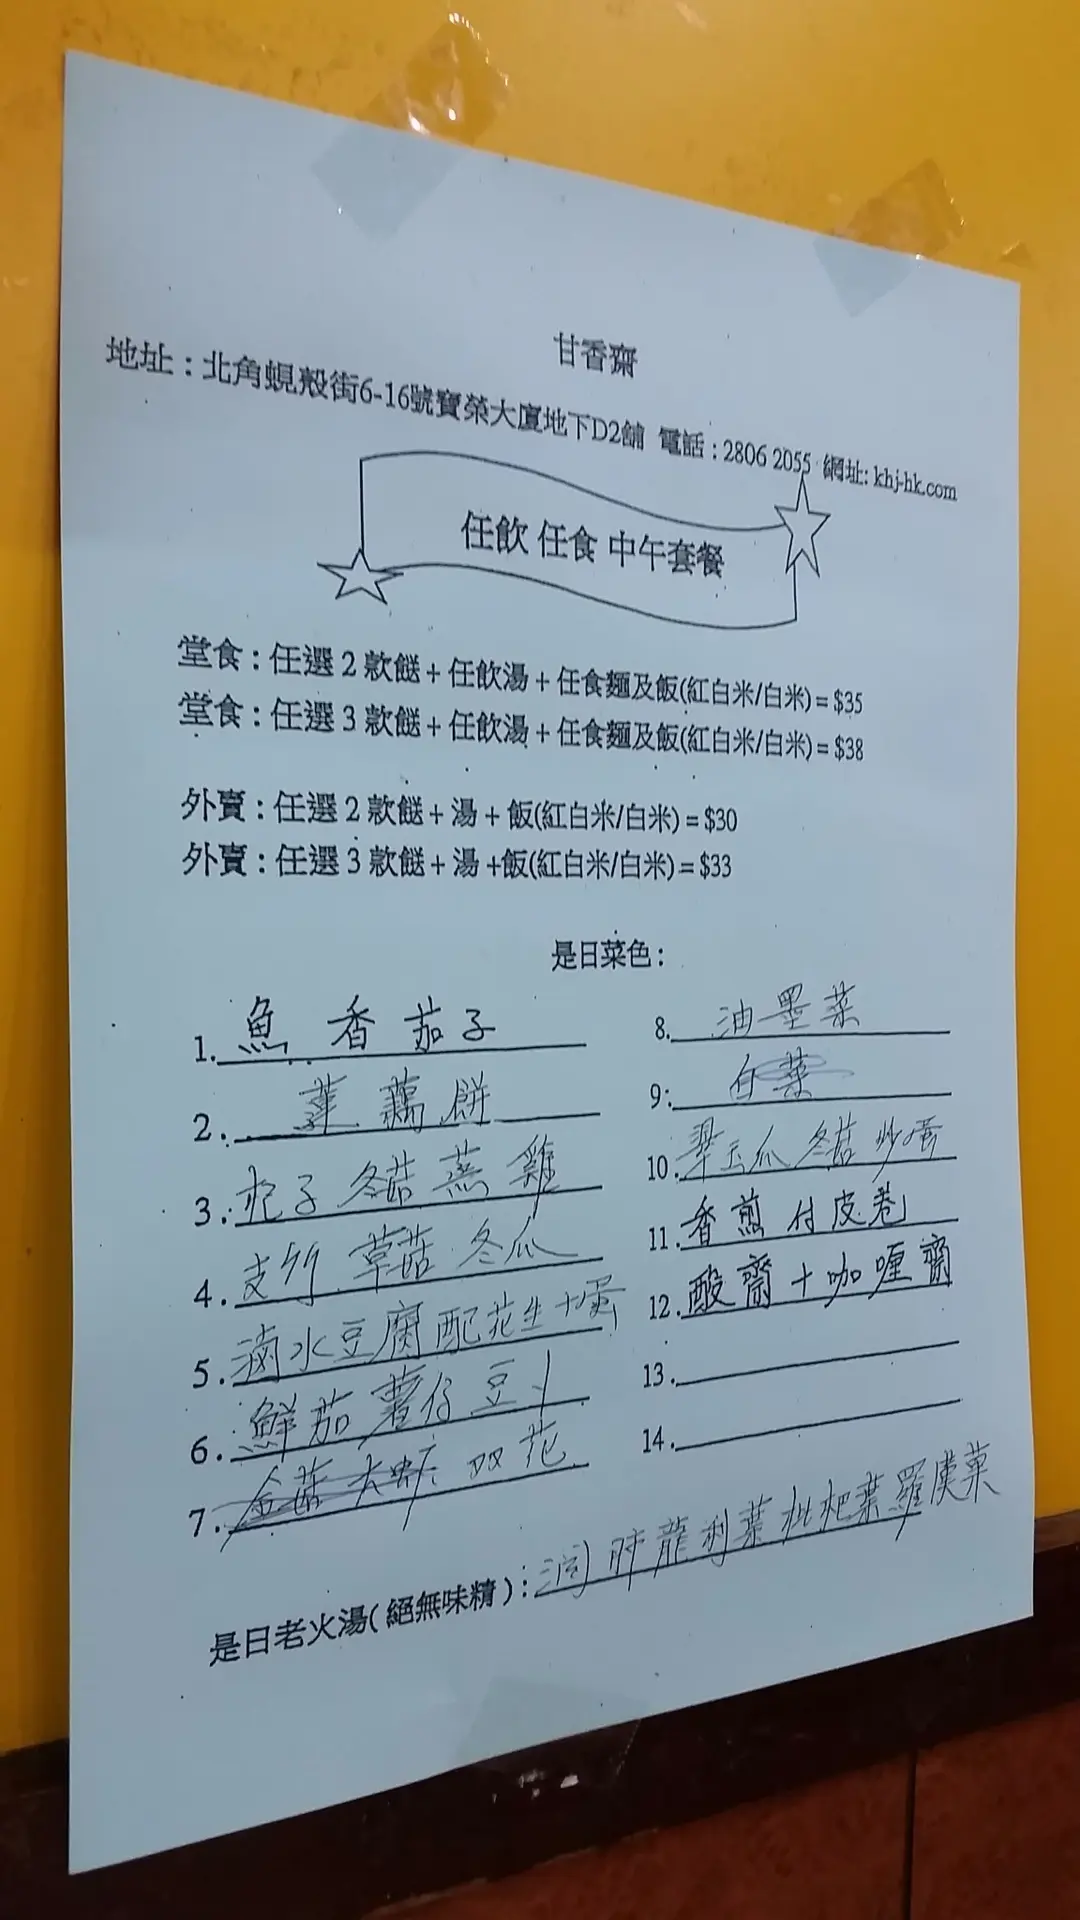 甘香齋
地址：北角蜆殼街6-16號寶榮大廈地下D2舖 電話：2806 2055 網址: khj-hk.com
任飲 任食 中午套餐
堂食：任選 2 款餸 + 任飲湯 + 任食麵及飯(紅白米/白米) = $35
堂食：任選 3 款餸 + 任飲湯 + 任食麵及飯(紅白米/白米) = $38
外賣：任選 2 款餸 + 湯 + 飯(紅白米/白米) = $30
外賣：任選 3 款餸 + 湯 +飯(紅白米/白米) = $33
是日菜色：
1. 魚香茄子
2. 蓮藕餅
3. 杞子冬菇蒸雞
4. 支竹草菇冬瓜
5. 滷水豆腐配花生+蛋
6. 鮮茄薯仔豆卜
7. 双花
8. 油墨菜
9: 白菜
10. 翠玉瓜冬菇炒蛋
11. 香煎付皮卷
12. 酸齋+咖喱齋
13.
14.
是日老火湯( 絕無味精 )：潤肺龍利葉枇杷葉羅漢菓